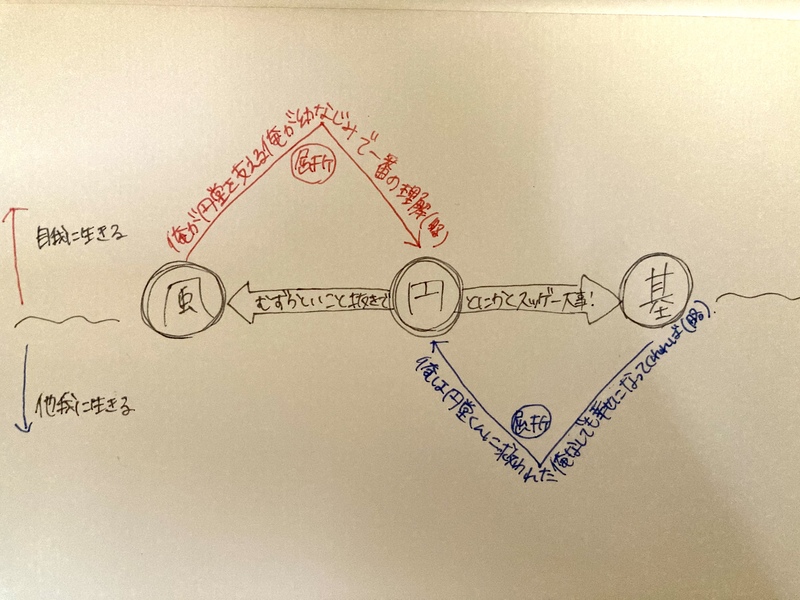 俺が円堂を支える俺が幼なじみで一番の理解(略)
屈折
自我に生きる
風
むずかしいこと抜きで
円
とにかくスッゲー大事!
基
他我に生きる
俺は円堂くんに救われた俺なしでも幸せになってくれれば(略)
屈折